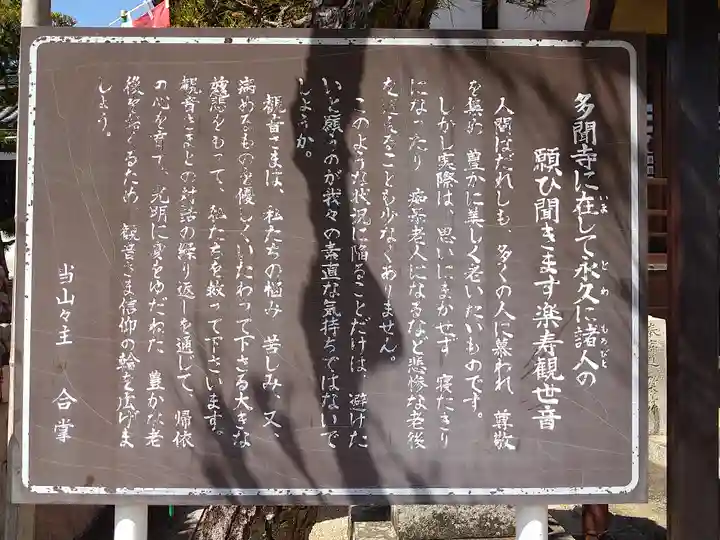 多聞寺に在して永久に諸人の
いま
とわ
もろびと
願ひ聞きます楽寿観世音
人間はだれしも、多くの人に慕われ 尊敬
を集め 豊かに美しく老いたいものです。
しかし実際は、思いにまかせず 寝たきり
になったり 痴呆老人になるなど悲惨な老後
を迎えることも少なくありません。
このような状況に陥ることだけは 避けた
いと願うのが我々の素直な気持ちではないで
しょうか。
観音さまは、私たちの悩み 苦しみ、又、
病めるものを優しくいたわって下さる大きな
慈悲をもって、私たちを救って下さいます。
観音さまとの対話の繰り返しを通して、帰依
の心を育て、光明に身をゆだねた 豊かな老
後を送るため 観音さま信仰の輪を広げま
しょう。
当山々主 合掌